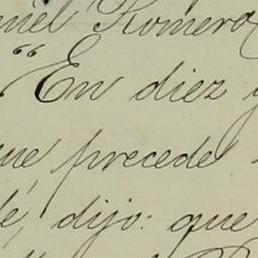 niel Romero
“En diez y
que precede
dijo: que